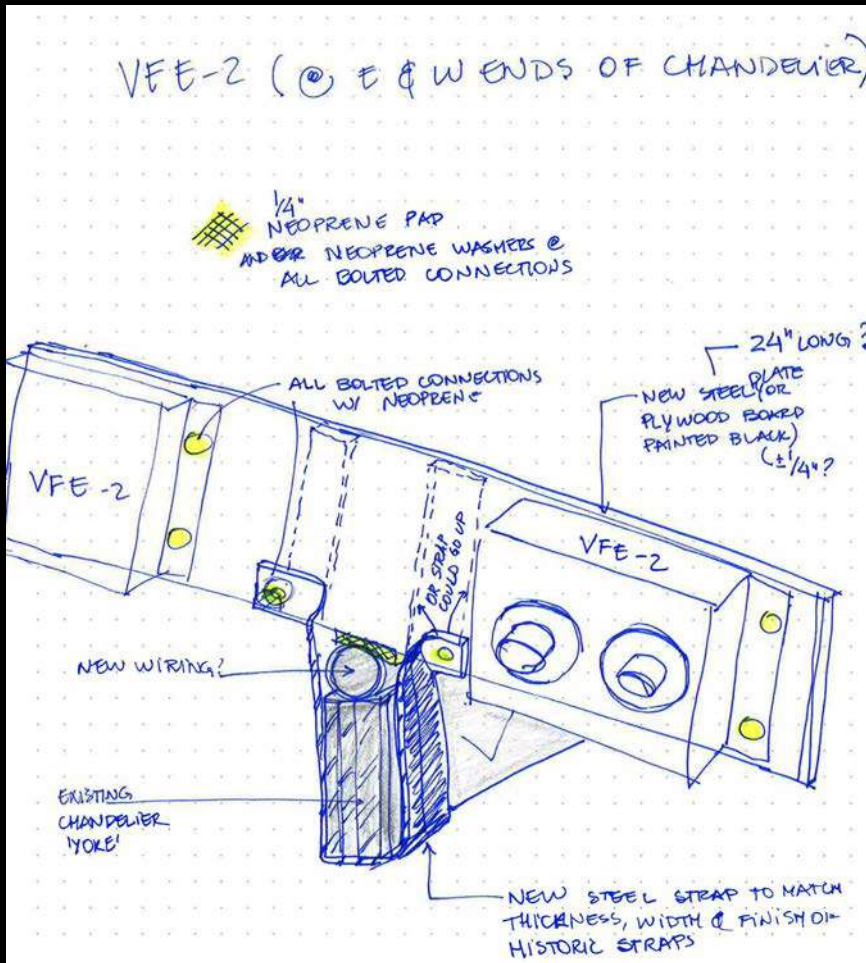 VFE-2 (@ E & W ENDS OF CHANDELIER)
1/4"
NEOPRENE PAD
NEOPRENE WASHERS @
ALL BOLTED CONNECTIONS
24" LONG?
ALL BOLTED CONNECTIONS
W/ NEOPRENE
PLATE
NEW STEEL (OR
PLYWOOD BOARD
PAINTED BLACK)
(±1/4"?
VFE-2
VFE-2
OR STRAP
COULD GO UP
NEW WIRING?
EXISTING
CHANDELIER
'YOKE'
NEW STEEL STRAP TO MATCH
THICKNESS, WIDTH & FINISH OF
HISTORIC STRAPS